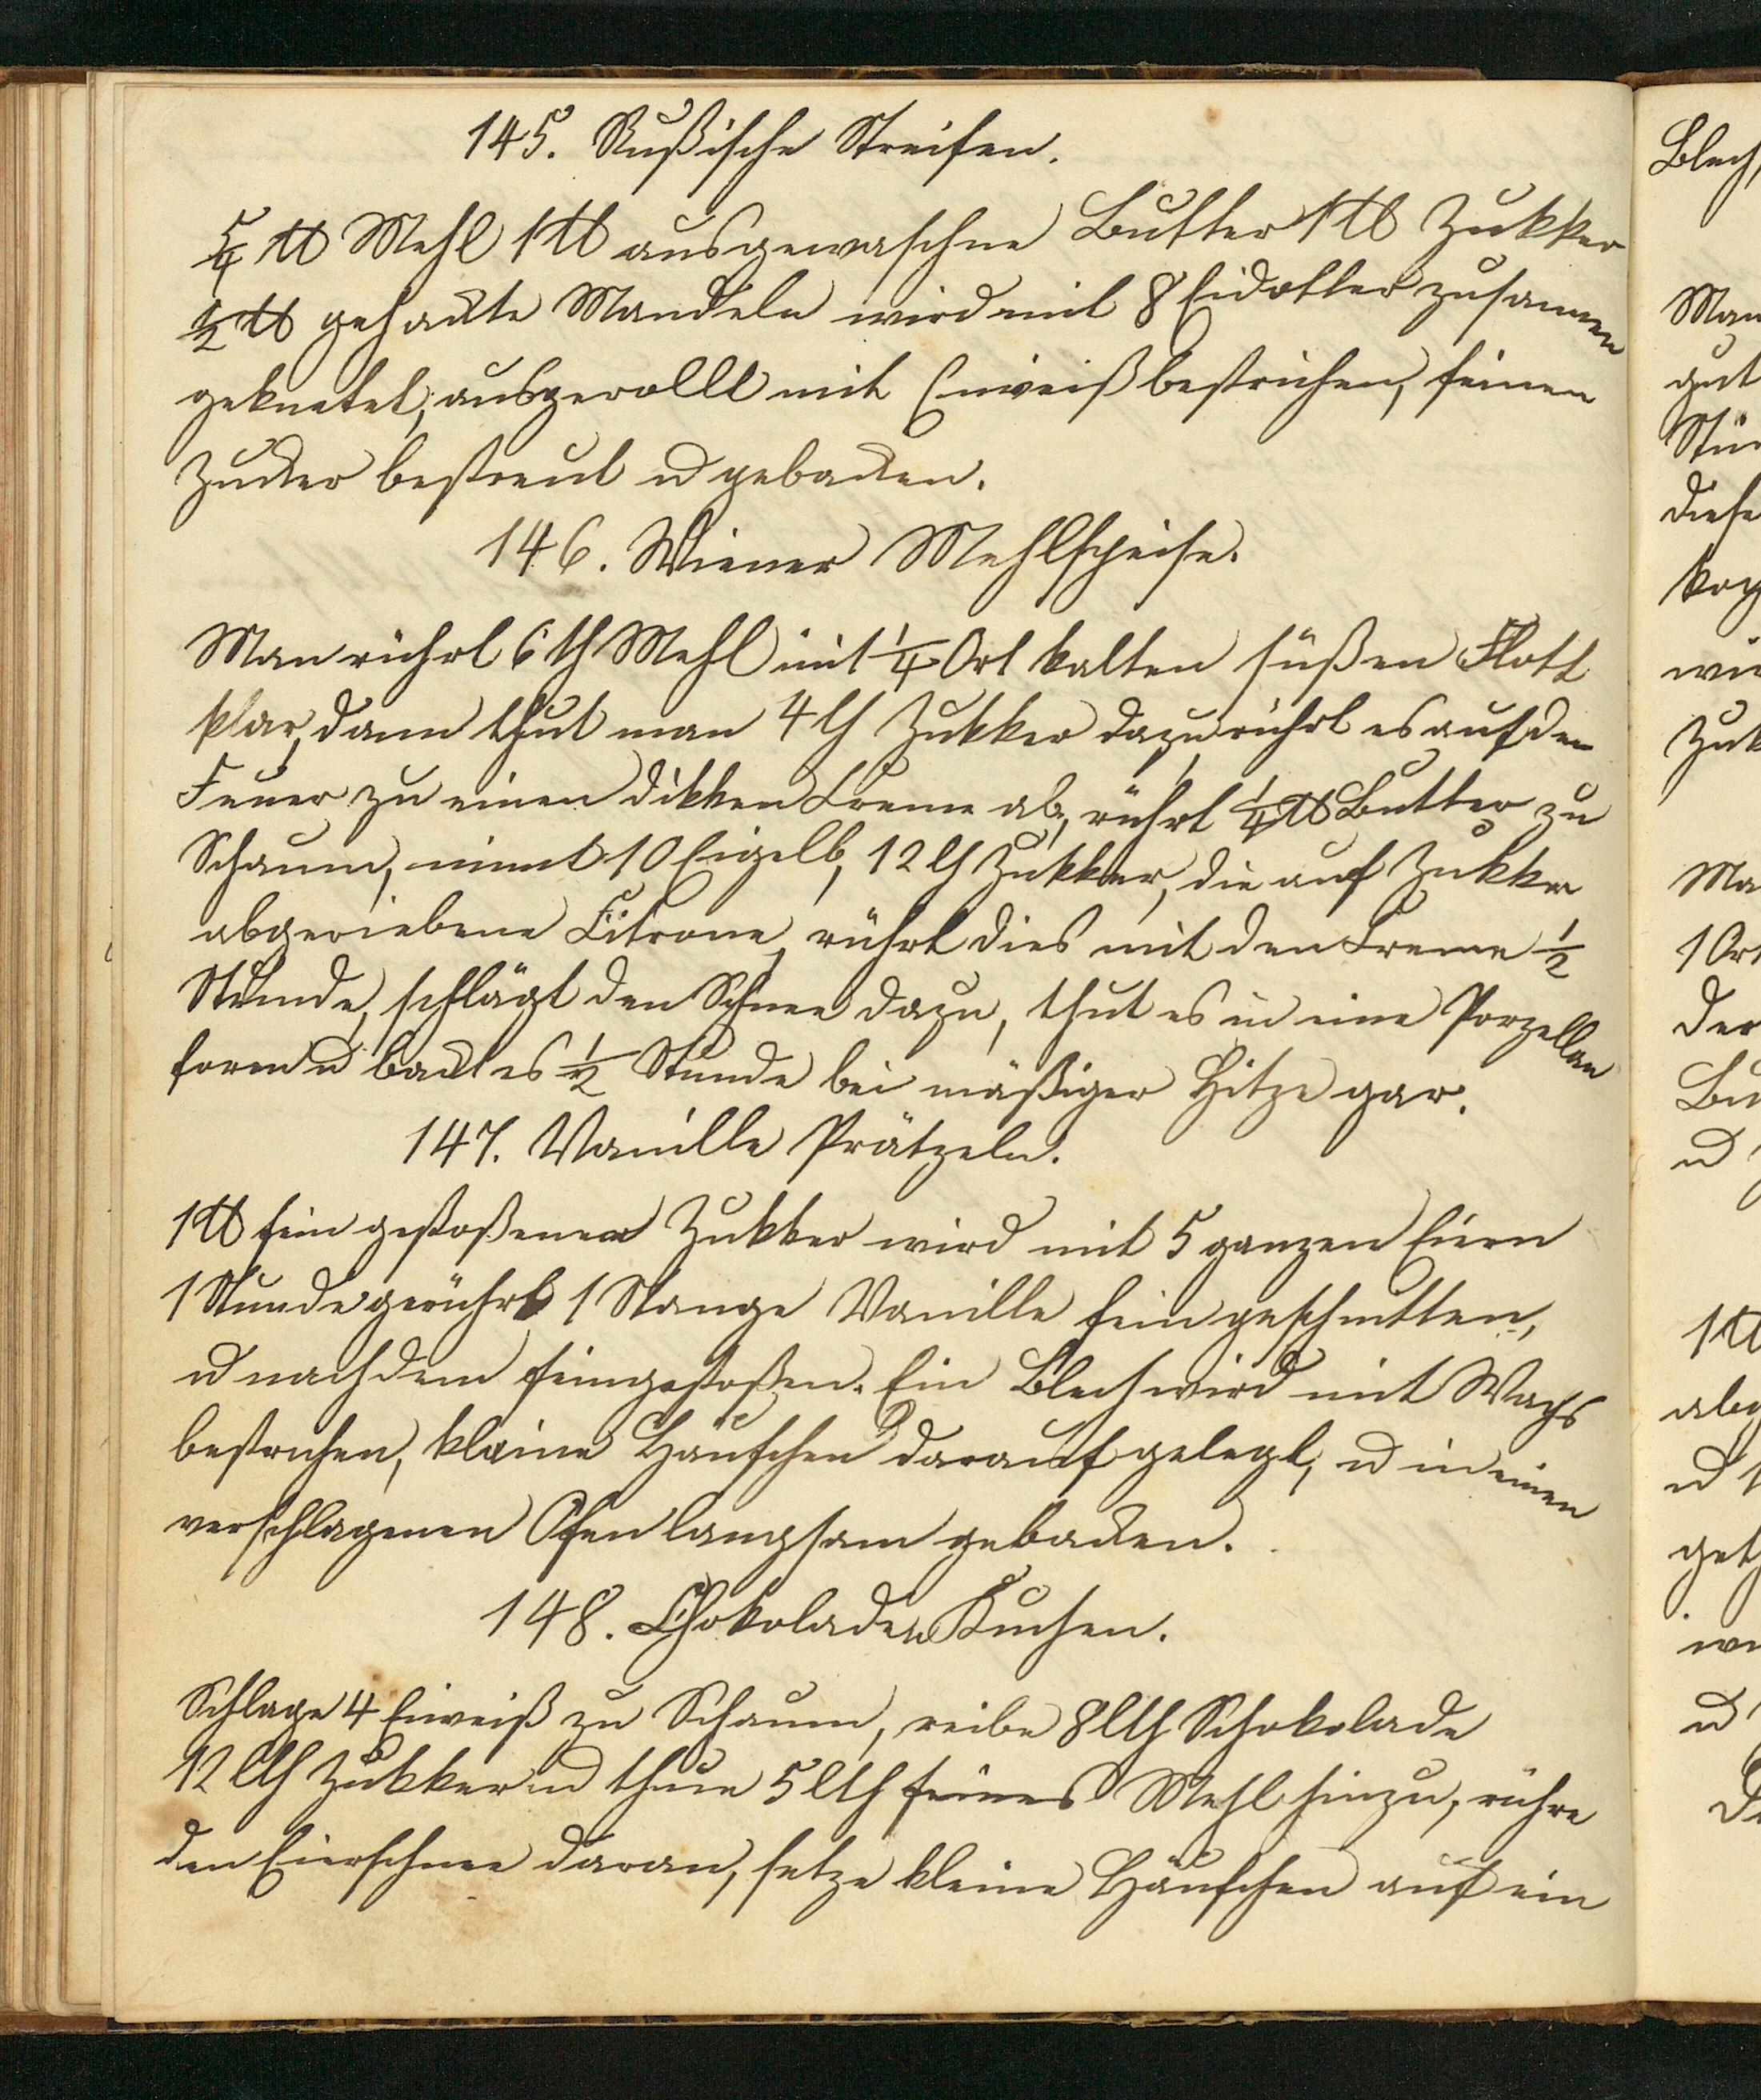 145. Rußische Streifen.
5/4 ℔ Mehl 1 ℔ ausgewaschne Butter 1 ℔ Zukker
1/2 ℔ gehackte Mandeln wird mit 8 Eidotter zusammen
geknetet, ausgerollt mit Eiweiß bestrichen, feinen
Zucker bestreut u gebacken.
146. Wiener Mehlspeise.
Man rührt 6 lth Mehl mit 1/4 Ort kalten süßen Flott
klar, dann thut man 4 lth Zukker dazu, rührt es auf den
Feuer zu einen dikken Creme ab, rührt 1/4 ℔ Butter zu
Schaum, nimt 10 Eigelb, 12 lth Zukker, die auf Zukker
abgeriebene Citrone, rührt dies mit den Creme 1/2
Stunde, schlägt den Schnee dazu, thut es in eine Porzellan
form u backt es 1/2 Stunde bei mäßiger Hitze gar.
147. Vanille Prätzeln.
1 ℔ fein gestoßenen Zukker wird mit 5 ganzen Eiern
1 Stunde gerührt 1 Stange Vanille fein geschnitten,
u nachdem feingestoßen. Ein Blech wird mit Wachs
bestrichen, kleine Häufchen darauf gelegt, u in einen
verschlagenen Ofen langsam gebacken.
148. Chokoladen Kuchen.
Schlage 4 Eiweiß zu Schaum, reibe 8 lth Schokolade
12 lth Zukker und thue 5 lth feines Mehl hinzu, rühre
den Eierschnee daran, setze kleine Häufchen auf ein
Blech,
Man
gut
diese
wir
Zuk
Ma
1 Ort
der
Bu
u
1 ℔
abg
u 1
u